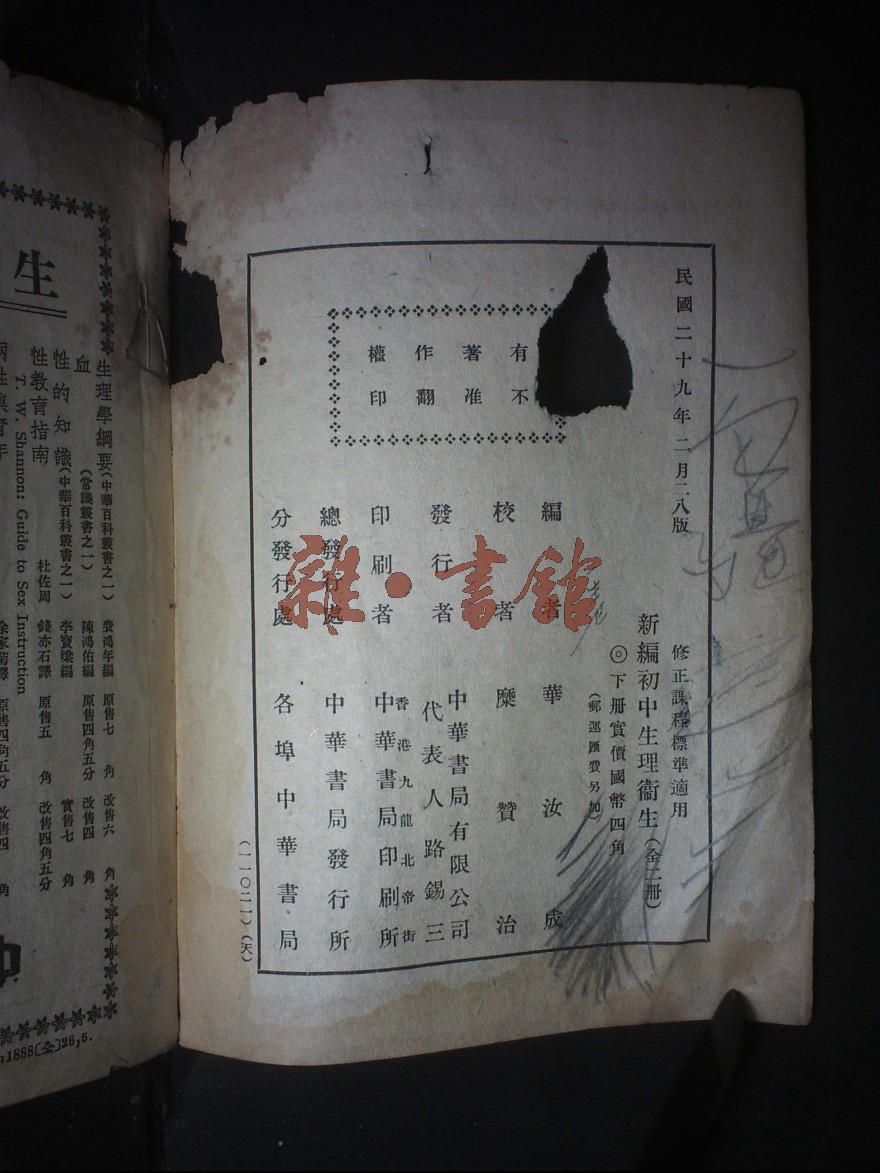 民國二十九年二月二八版
修正課程標準適用
新編初中生理衞生（全二冊）
◎下冊實價國幣四角
（郵運匯費另加）
有不
著准
作翻
權印
編者 華汝成
校者 糜贊治
發行者 中華書局有限公司
代表人路錫三
印刷者 香港九龍北帝街
中華書局印刷所
總發行處 中華書局發行所
分發行處 各埠中華書局
（一一〇二一）（天）
雜·書館
生
生理學綱要（中華百科叢書之一） 龔鴻年編 原售七角 改售六角
血（常識叢書之一） 陳鴻佑編 原售四角五分 改售四角
性的知識（中華百科叢書之一） 李寶梁編 實售七角
性教育指南 杜佐周 錢亦石譯 原售五角 改售四角五分
T. W. Shannon: Guide to Sex Instruction
原售四角五分 改售四角
1888〔全〕26,5.